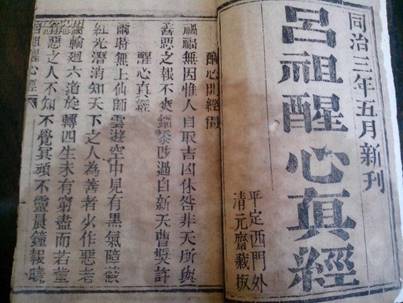 同治三年五月新刊
呂祖醒心真經
平定西門外
清元齋藏板
醒心真經
禍福無因惟人自取吉凶休咎非天所與
善惡之報不爽錙黍改過自新天曹紫許
醒心真經
爾時無上仙師雲遊空中見有黑氣障蔽
紅光潛消知天下之人為善者少作惡者
輪迴六道旋轉四生未有窮盡而若輩
惡之人不知不覺冥頑不靈晨鐘報曉